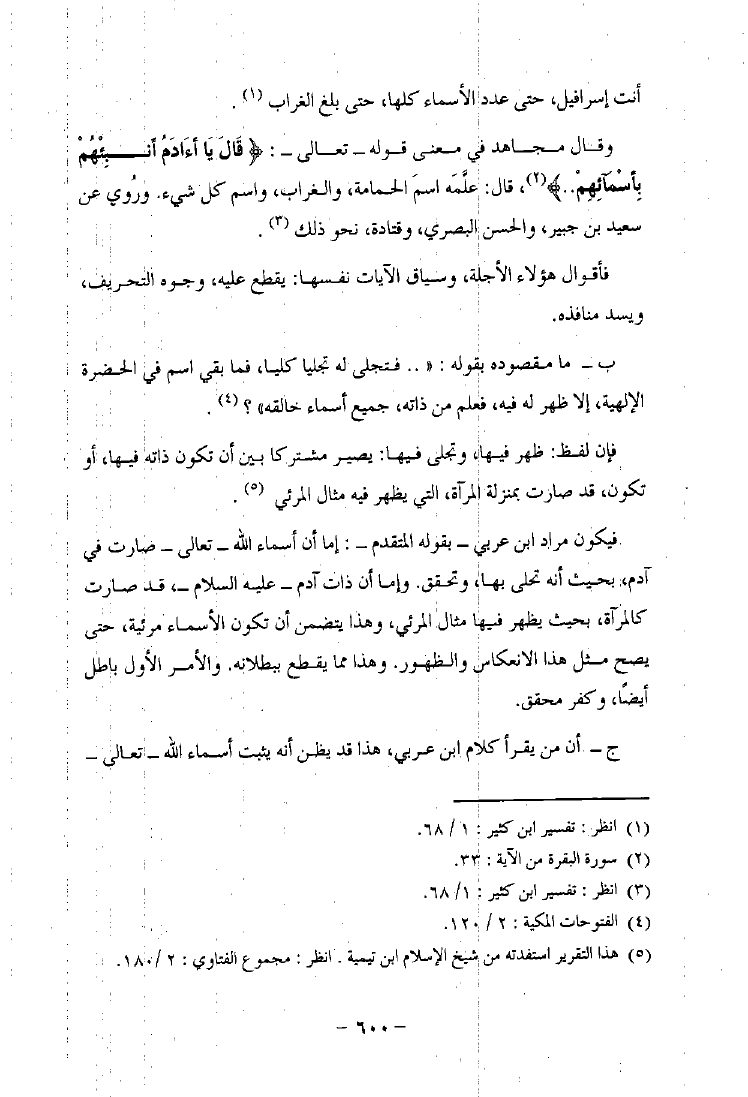 أنت إسرافيل، حتى عدد الأسماء كلها، حتى بلغ الغراب (١) .
وقال مجاهد في معنى قوله ـ تعالى ـ : ﴿ قَالَ يَا ءَادَمُ أَنبِئْهُمْ
بِأَسْمَآئِهِمْ..﴾(٢)، قال: علَّمَه اسمَ الحمامة، والغراب، واسم كل شيء. ورُوي عن
سعيد بن جبير، والحسن البصري، وقتادة، نحو ذلك (٣) .
فأقوال هؤلاء الأجلة، وسياق الآيات نفسها: يقطع عليه، وجوه التحريف،
ويسد منافذه.
ب ـ ما مقصوده بقوله : « .. فتجلى له تجليا كليا، فما بقي اسم في الحضرة
الإلهية، إلا ظهر له فيه، فعلم من ذاته، جميع أسماء خالقه» ؟ (٤) .
فإن لفظ: ظهر فيها، وتجلى فيها: يصير مشتركا بين أن تكون ذاته فيها، أو
تكون، قد صارت بمنزلة المرآة، التي يظهر فيه مثال المرئي (٥) .
فيكون مراد ابن عربي ـ بقوله المتقدم ـ : إما أن أسماء الله ـ تعالى ـ صارت في
آدم، بحيث أنه تحلى بها، وتحقق. وإما أن ذات آدم ـ عليه السلام ـ، قد صارت
كالمرآة، بحيث يظهر فيها مثال المرئي، وهذا يتضمن أن تكون الأسماء مرئية، حتى
يصح مثل هذا الانعكاس والظهور. وهذا مما يقطع ببطلانه. والأمر الأول باطل
أيضًا، وكفر محقق.
ج ـ أن من يقرأ كلام ابن عربي، هذا قد يظن أنه يثبت أسماء الله ـ تعالى ـ
(١) انظر : تفسير ابن كثير : ١ / ٦٨.
(٢) سورة البقرة من الآية : ٣٣.
(٣) انظر : تفسير ابن كثير : ١ /٦٨.
(٤) الفتوحات المكية : ٢ / ١٢٠.
(٥) هذا التقرير استفدته من شيخ الإسلام ابن تيمية . انظر : مجموع الفتاوي : ٢ /١٨٠.
ـ ٦٠٠ ـ